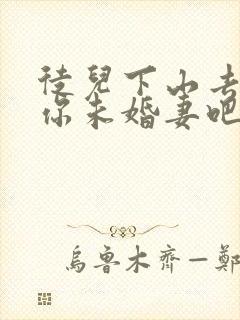 徒兒下山去
你未婚妻吧
烏魯木齊—鄭